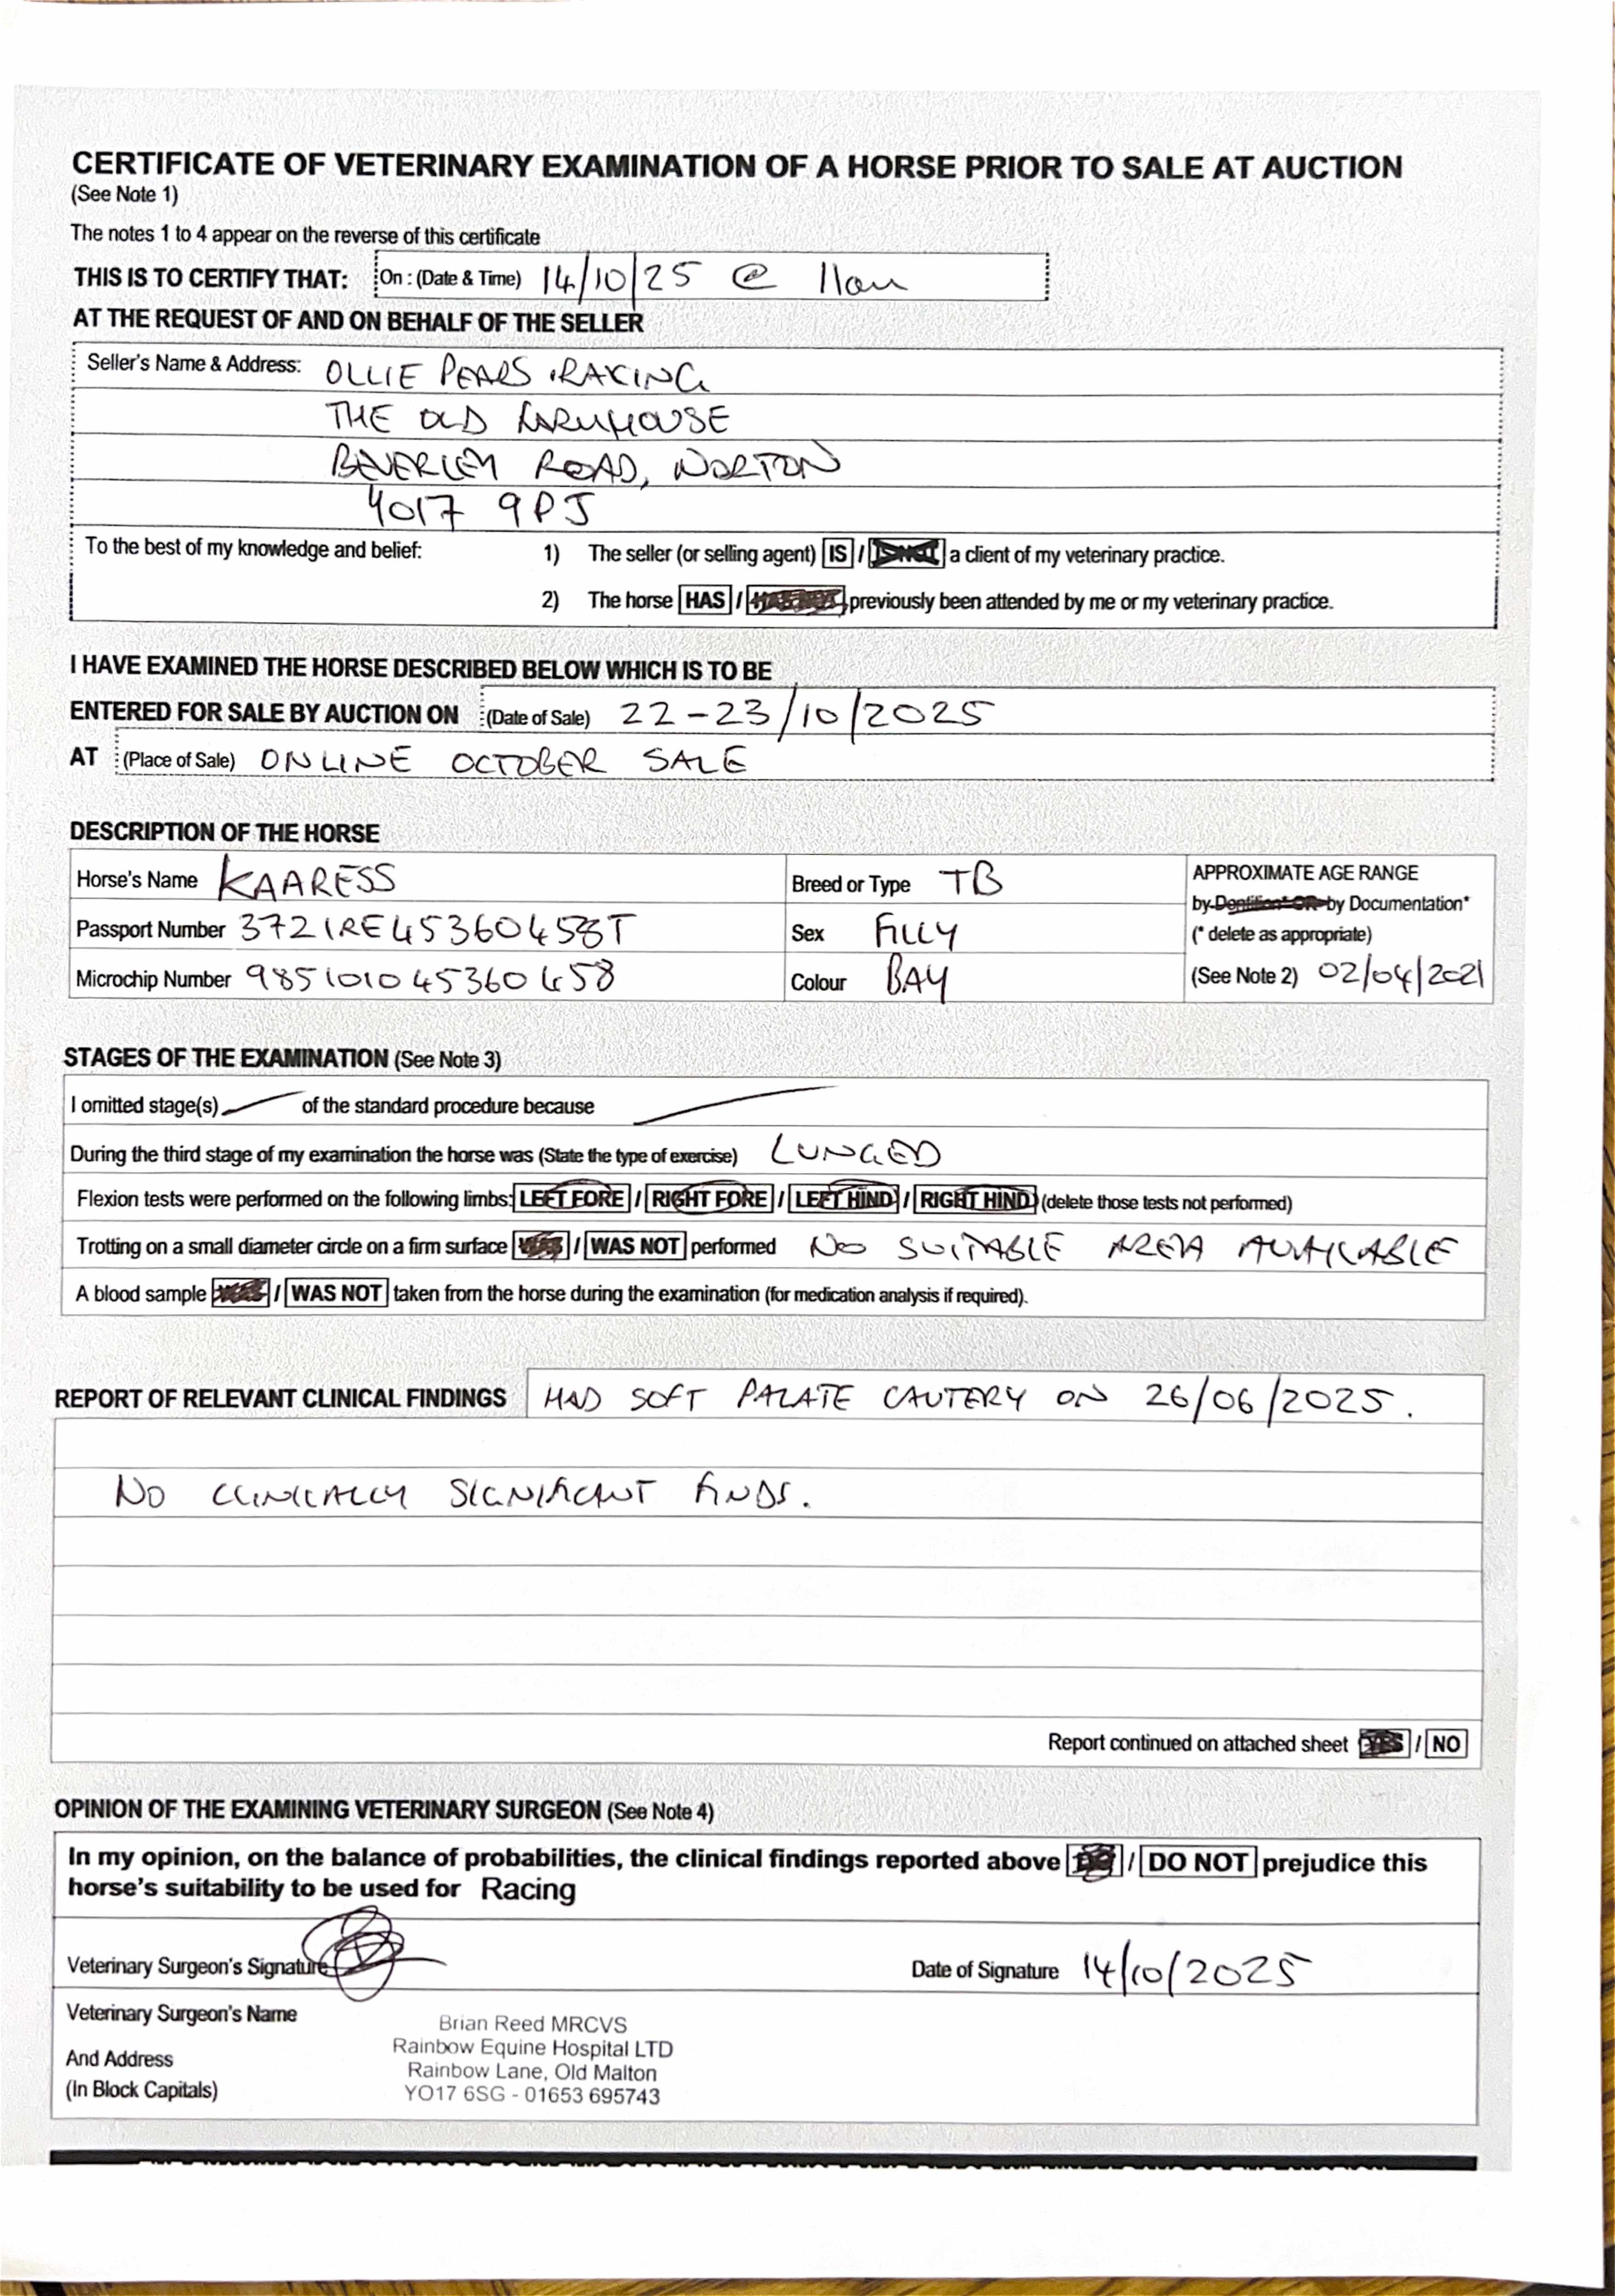 CERTIFICATE OF VETERINARY EXAMINATION OF A HORSE PRIOR TO SALE AT AUCTION
(See Note 1)
The notes 1 to 4 appear on the reverse of this certificate
THIS IS TO CERTIFY THAT: On : (Date & Time) 14/10/25 @ 11am
AT THE REQUEST OF AND ON BEHALF OF THE SELLER
Seller's Name & Address: OLLIE PEARS RACING
THE OLD FARMHOUSE
BEVERLEY ROAD, NORTON
YO17 9PJ
To the best of my knowledge and belief: 1) The seller (or selling agent) IS / IS NOT a client of my veterinary practice.
2) The horse HAS / HAS NOT previously been attended by me or my veterinary practice.
I HAVE EXAMINED THE HORSE DESCRIBED BELOW WHICH IS TO BE
ENTERED FOR SALE BY AUCTION ON (Date of Sale) 22-23/10/2025
AT (Place of Sale) ONLINE OCTOBER SALE
DESCRIPTION OF THE HORSE
Horse's Name KAARESS Breed or Type TB APPROXIMATE AGE RANGE
by Dentition* OR by Documentation*
Passport Number 372IRE45360458T Sex FILLY (* delete as appropriate)
Microchip Number 985101045360458 Colour BAY (See Note 2) 02/04/2021
STAGES OF THE EXAMINATION (See Note 3)
I omitted stage(s) of the standard procedure because
During the third stage of my examination the horse was (State the type of exercise) LUNGED
Flexion tests were performed on the following limbs: LEFT FORE / RIGHT FORE / LEFT HIND / RIGHT HIND (delete those tests not performed)
Trotting on a small diameter circle on a firm surface / WAS NOT performed NO SUITABLE AREA AVAILABLE
A blood sample / WAS NOT taken from the horse during the examination (for medication analysis if required).
REPORT OF RELEVANT CLINICAL FINDINGS HAD SOFT PALATE CAUTERY ON 26/06/2025.
NO CLINICALLY SIGNIFICANT FINDS.
Report continued on attached sheet YES / NO
OPINION OF THE EXAMINING VETERINARY SURGEON (See Note 4)
In my opinion, on the balance of probabilities, the clinical findings reported above / DO NOT prejudice this
horse's suitability to be used for Racing
Veterinary Surgeon's Signature Date of Signature 14/10/2025
Veterinary Surgeon's Name
And Address
(In Block Capitals)
Brian Reed MRCVS
Rainbow Equine Hospital LTD
Rainbow Lane, Old Malton
YO17 6SG - 01653 695743